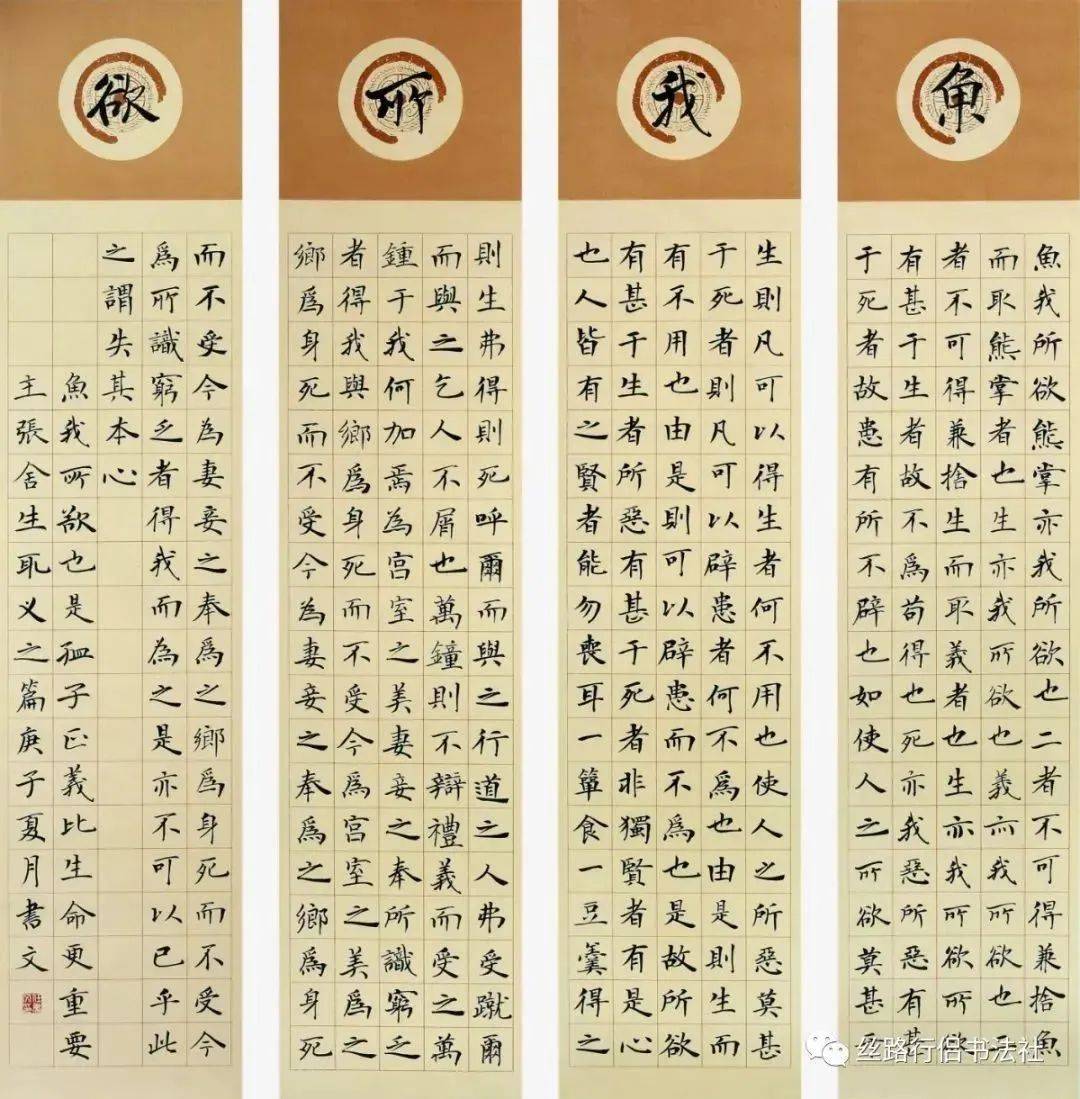 魚
我
所
欲
魚我所欲熊掌亦我所欲也二者不可得兼捨魚
而取熊掌者也生亦我所欲也義亦我所欲也二
者不可得兼捨生而取義者也生亦我所欲所欲
有甚于生者故不爲苟得也死亦我惡所惡有甚
于死者故患有所不辟也如使人之所欲莫甚于
生則凡可以得生者何不用也使人之所惡莫甚
于死者則凡可以辟患者何不爲也由是則生而
有不用也由是則可以辟患而不爲也是故所欲
有甚于生者所惡有甚于死者非獨賢者有是心
也人皆有之賢者能勿喪耳一簞食一豆羹得之
則生弗得則死呼爾而與之行道之人弗受蹴爾
而與之乞人不屑也萬鐘則不辯禮義而受之萬
鍾于我何加焉為宮室之美妻妾之奉所識窮乏
者得我與鄉爲身死而不受今爲宮室之美爲之
鄉爲身死而不受今為妻妾之奉爲之鄉爲身死
而不受今為妻妾之奉爲之鄉爲身死而不受今
爲所識窮乏者得我而為之是亦不可以已乎此
之謂失其本心
魚我所欲也是孤子正義比生命更重要
主張舍生取义之篇庚子夏月書文
丝路行侣书法社